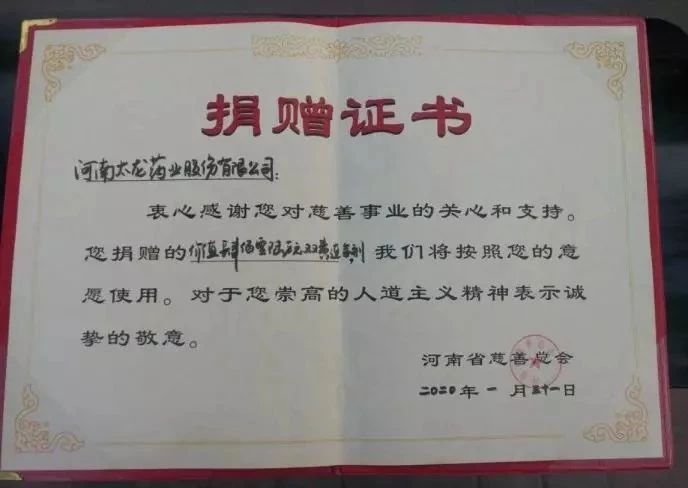 捐赠证书
河南太龙药业股份有限公司：
衷心感谢您对慈善事业的关心和支持。
您捐赠的价值 双黄连 我们将按照您的意
愿使用。对于您崇高的人道主义精神表示诚
挚的敬意。
河南省慈善总会
2020年一月三十一日